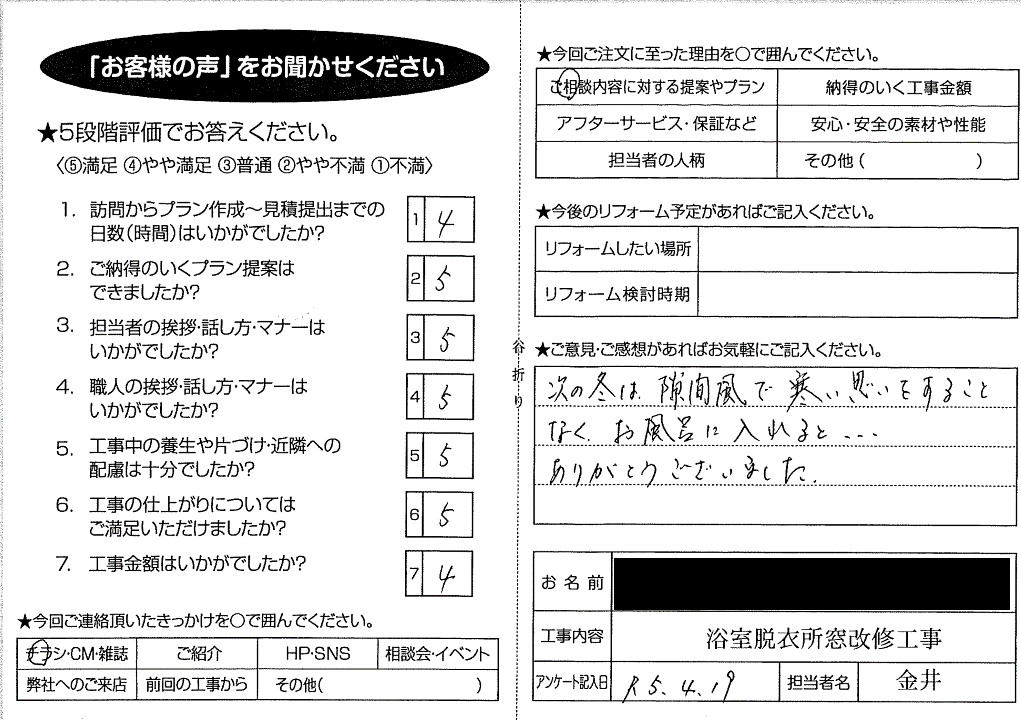 「お客様の声」をお聞かせください
★5段階評価でお答えください。
〈⑤満足 ④やや満足 ③普通 ②やや不満 ①不満〉
1. 訪問からプラン作成～見積提出までの
日数(時間)はいかがでしたか?
1 4
2. ご納得のいくプラン提案は
できましたか?
2 5
3. 担当者の挨拶・話し方・マナーは
いかがでしたか?
3 5
4. 職人の挨拶・話し方・マナーは
いかがでしたか?
4 5
5. 工事中の養生や片づけ・近隣への
配慮は十分でしたか?
5 5
6. 工事の仕上がりについては
ご満足いただけましたか?
6 5
7. 工事金額はいかがでしたか?
7 4
★今回ご連絡頂いたきっかけを○で囲んでください。
チラシ・CM・雑誌 ご紹介 HP・SNS 相談会・イベント
弊社へのご来店 前回の工事から その他( )
谷折り
★今回ご注文に至った理由を○で囲んでください。
ご相談内容に対する提案やプラン 納得のいく工事金額
アフターサービス・保証など 安心・安全の素材や性能
担当者の人柄 その他( )
★今後のリフォーム予定があればご記入ください。
リフォームしたい場所
リフォーム検討時期
★ご意見・ご感想があればお気軽にご記入ください。
次の冬は、隙間風で寒い思いをすること
なく、お風呂に入れると...
ありがとうございました。
お名前
工事内容 浴室脱衣所窓改修工事
アンケート記入日 R5.4.19 担当者名 金井